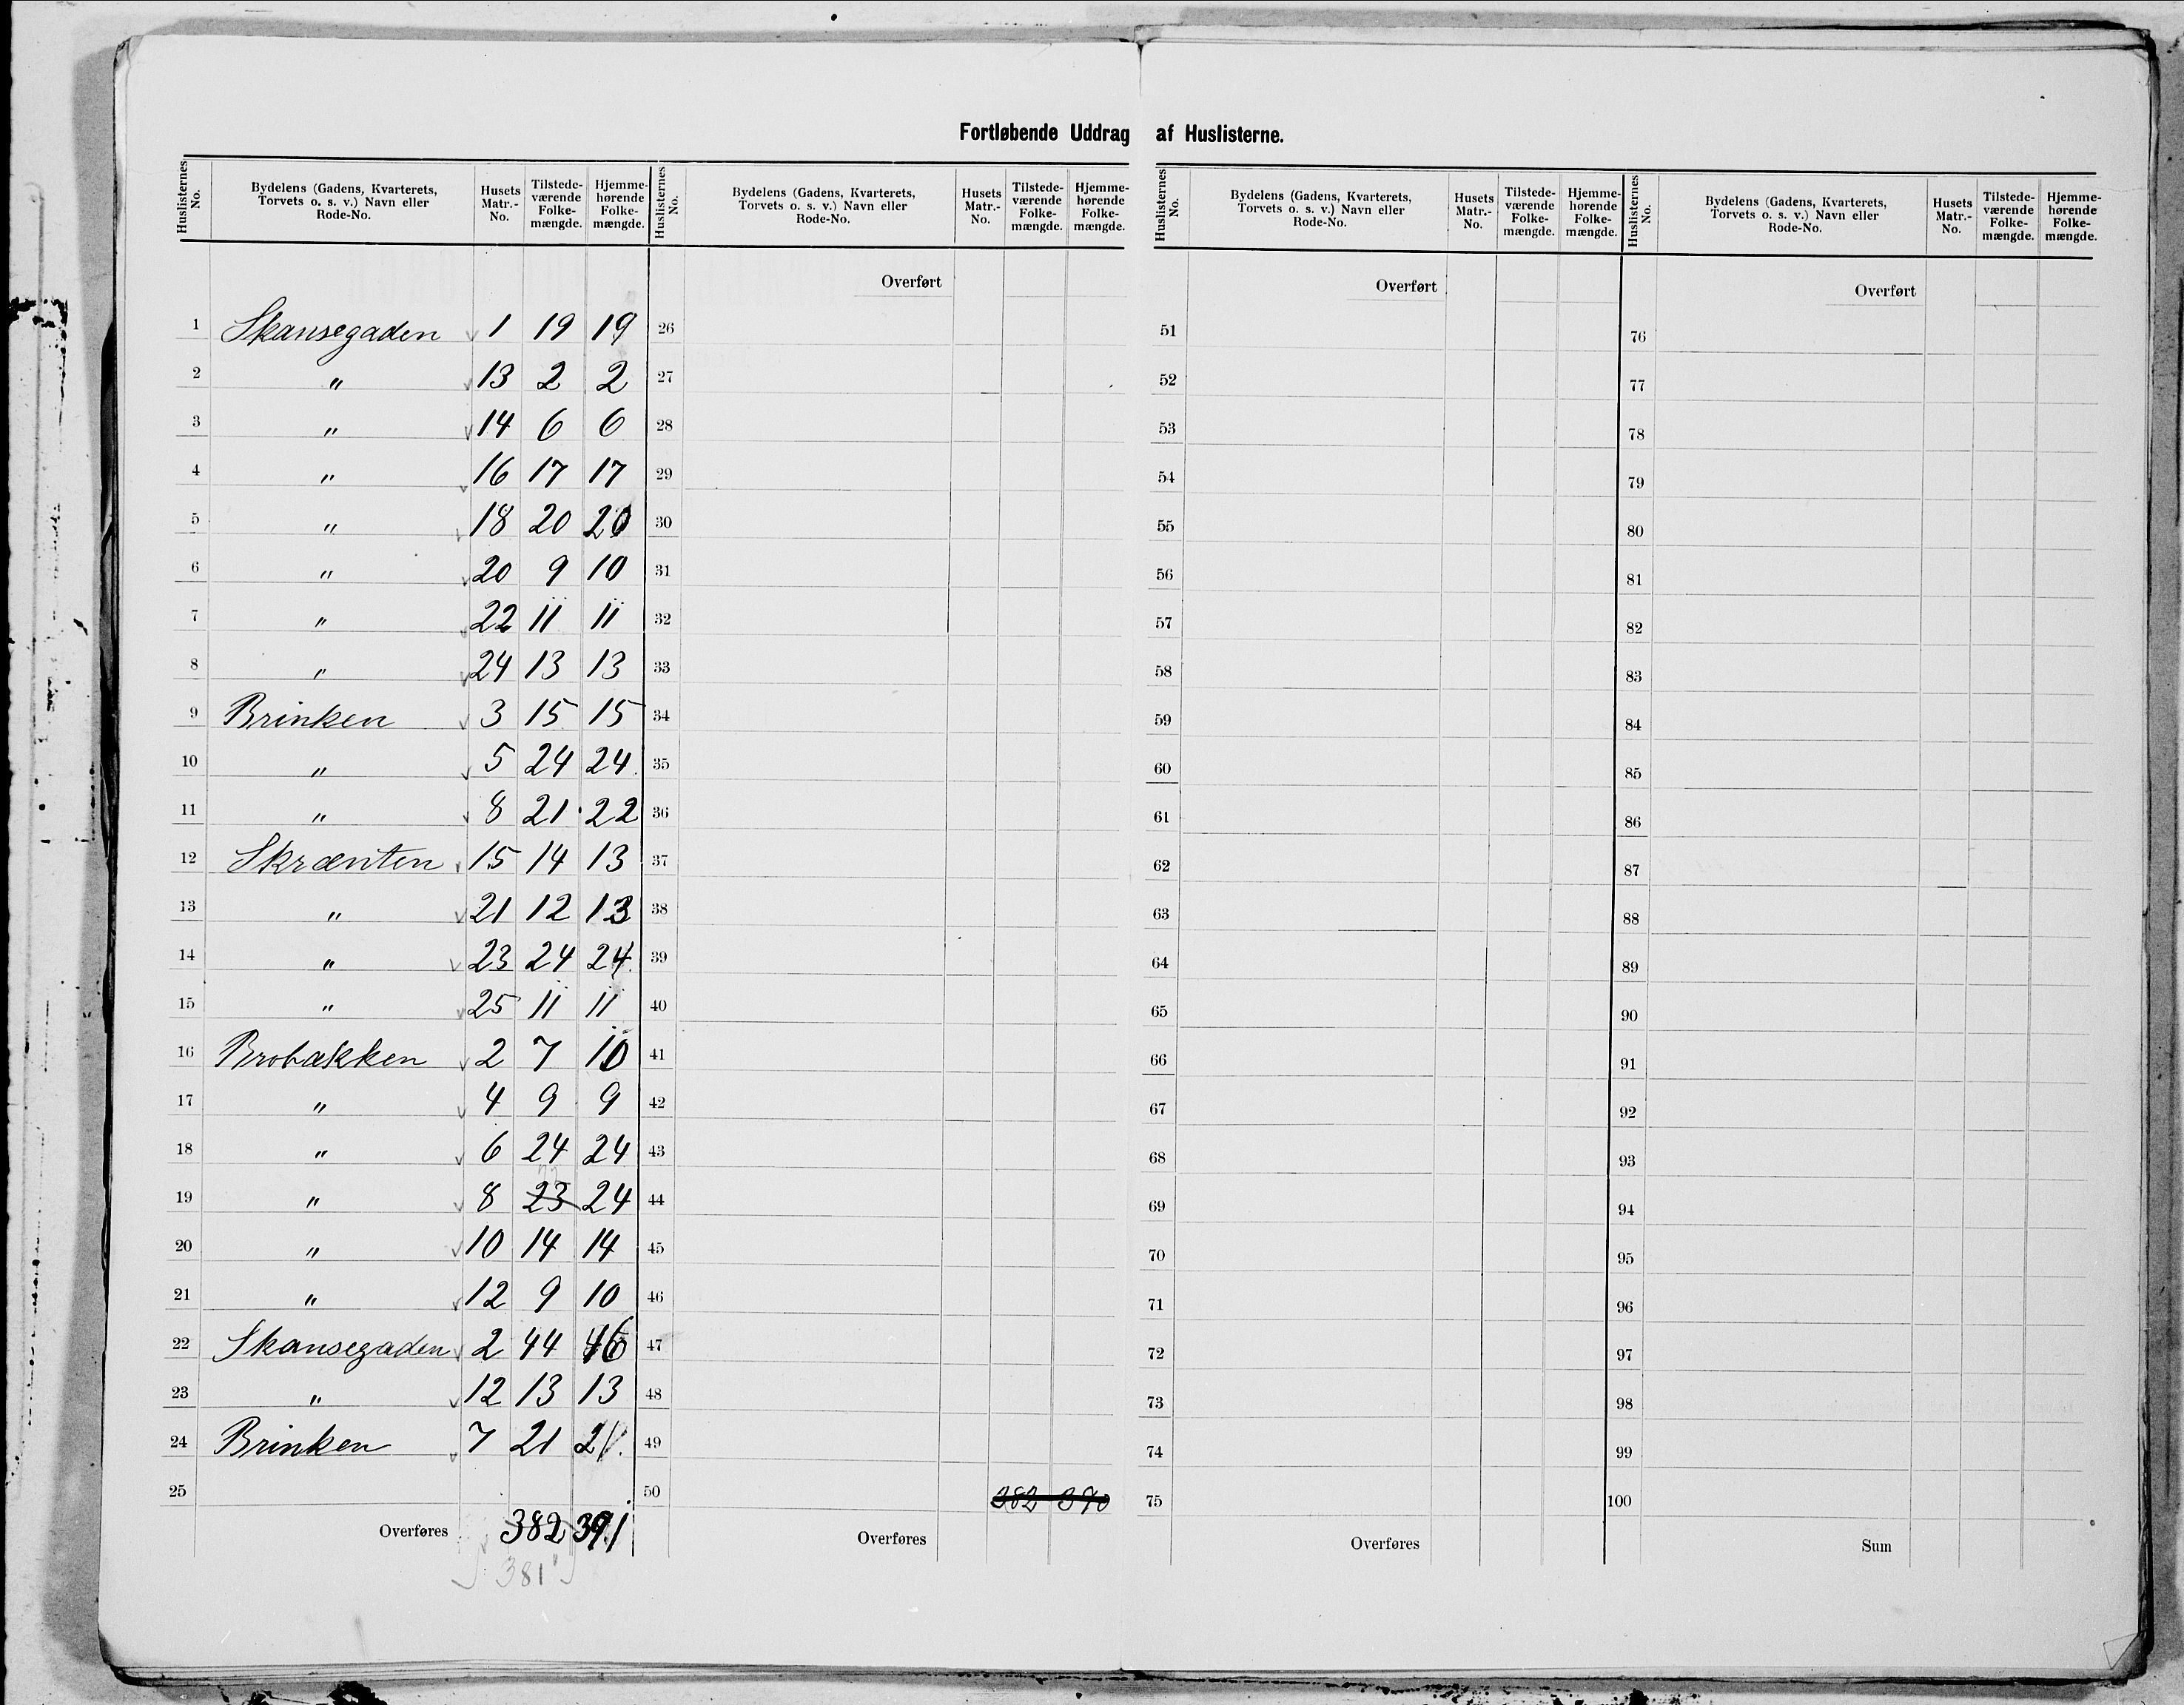 Fortløbende Uddrag af Huslisterne.
Huslisternes No. Bydelens (Gadens, Kvarterets, Torvets o. s. v.) Navn eller Rode-No. Husets Matr.-No. Tilstede-værende Folke-mængde. Hjemme-hørende Folke-mængde.
1 Skansegaden 1 19 19
2 " 13 2 2
3 " 14 6 6
4 " 16 17 17
5 " 18 20 20
6 " 20 9 10
7 " 22 11 11
8 " 24 13 13
9 Brinken 3 15 15
10 " 5 24 24
11 " 8 21 22
12 Skrænten 15 14 13
13 " 21 12 13
14 " 23 24 24
15 " 25 11 11
16 Brobækken 2 7 10
17 " 4 9 9
18 " 6 24 24
19 " 8 23 24
20 " 10 14 14
21 " 12 9 10
22 Skansegaden 2 44 46
23 " 12 13 13
24 Brinken 7 21 21
25
Overføres 382 391
381
Huslisternes No. Bydelens (Gadens, Kvarterets, Torvets o. s. v.) Navn eller Rode-No. Husets Matr.-No. Tilstede-værende Folke-mængde. Hjemme-hørende Folke-mængde.
Overført
26
27
28
29
30
31
32
33
34
35
36
37
38
39
40
41
42
43
44
45
46
47
48
49
50 382 390
Overføres
Huslisternes No. Bydelens (Gadens, Kvarterets, Torvets o. s. v.) Navn eller Rode-No. Husets Matr.-No. Tilstede-værende Folke-mængde. Hjemme-hørende Folke-mængde.
Overført
51
52
53
54
55
56
57
58
59
60
61
62
63
64
65
66
67
68
69
70
71
72
73
74
75
Overføres
Huslisternes No. Bydelens (Gadens, Kvarterets, Torvets o. s. v.) Navn eller Rode-No. Husets Matr.-No. Tilstede-værende Folke-mængde. Hjemme-hørende Folke-mængde.
Overført
76
77
78
79
80
81
82
83
84
85
86
87
88
89
90
91
92
93
94
95
96
97
98
99
100
Sum